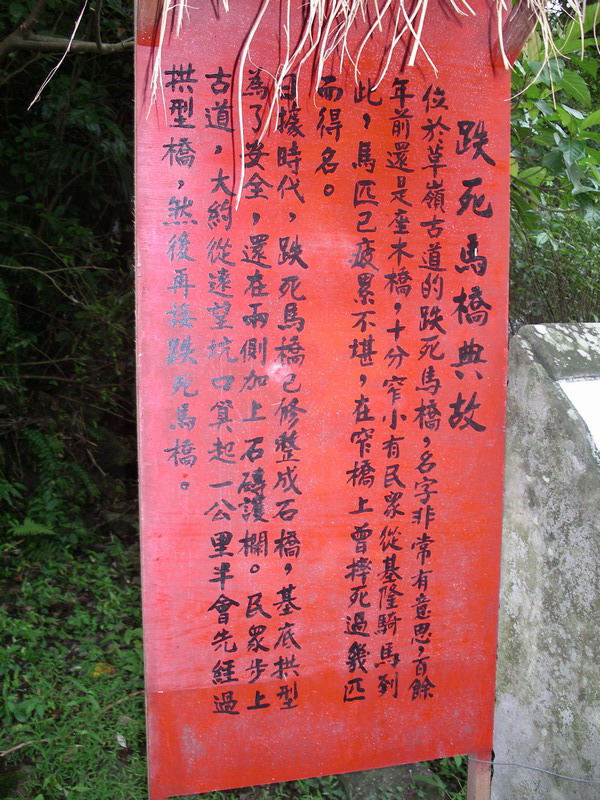 跌死馬橋典故
位於草嶺古道的跌死馬橋，名字非常有意思，百餘
年前還是座木橋，十分窄小有民眾從基隆騎馬到
此，馬匹已疲累不堪，在窄橋上曾摔死過幾匹
而得名。
日據時代，跌死馬橋已修整成石橋，基底拱型
為了安全，還在兩側加上石磚護欄。民眾步上
古道，大約從遠望坑口算起一公里半會先經過
拱型橋，然後再接跌死馬橋。